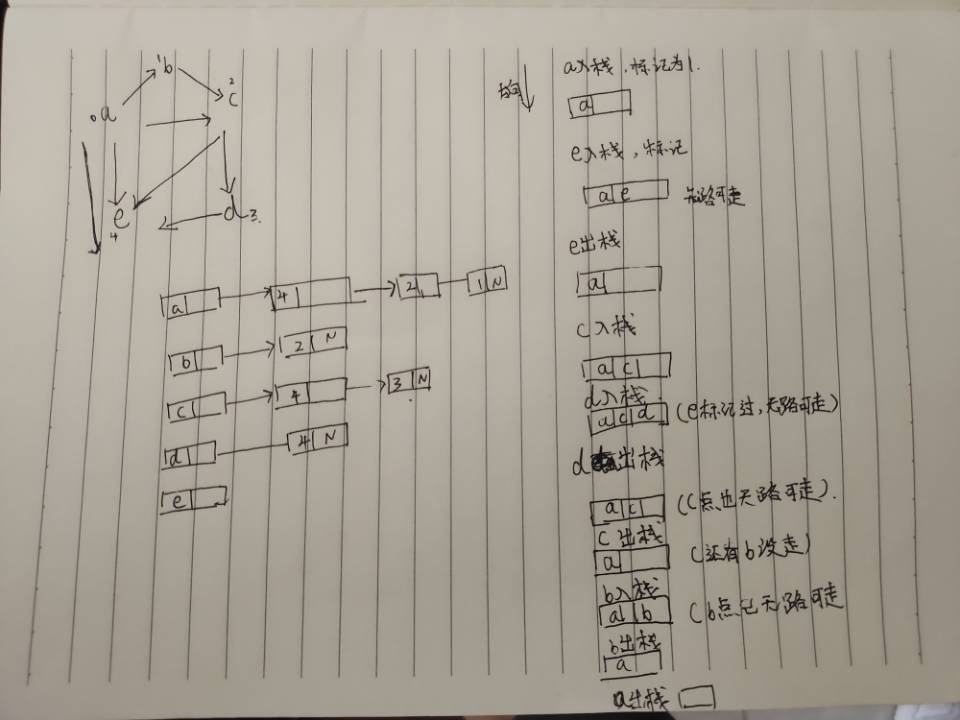 1 b
2
c
0 a
e
4
d 3.
a 4 2 1 N
b 2 N
c 4 3 N
d 4 N
e
a入栈.标记为1.
a
e入栈,标记
a e 无路可走
e出栈
a
c入栈
a c
d入栈
a c d (e标记过,无路可走)
d 出栈
a c (c点也无路可走).
c出栈
a (还有b没走)
b入栈
a b (b点已无路可走
b出栈
a
a出栈